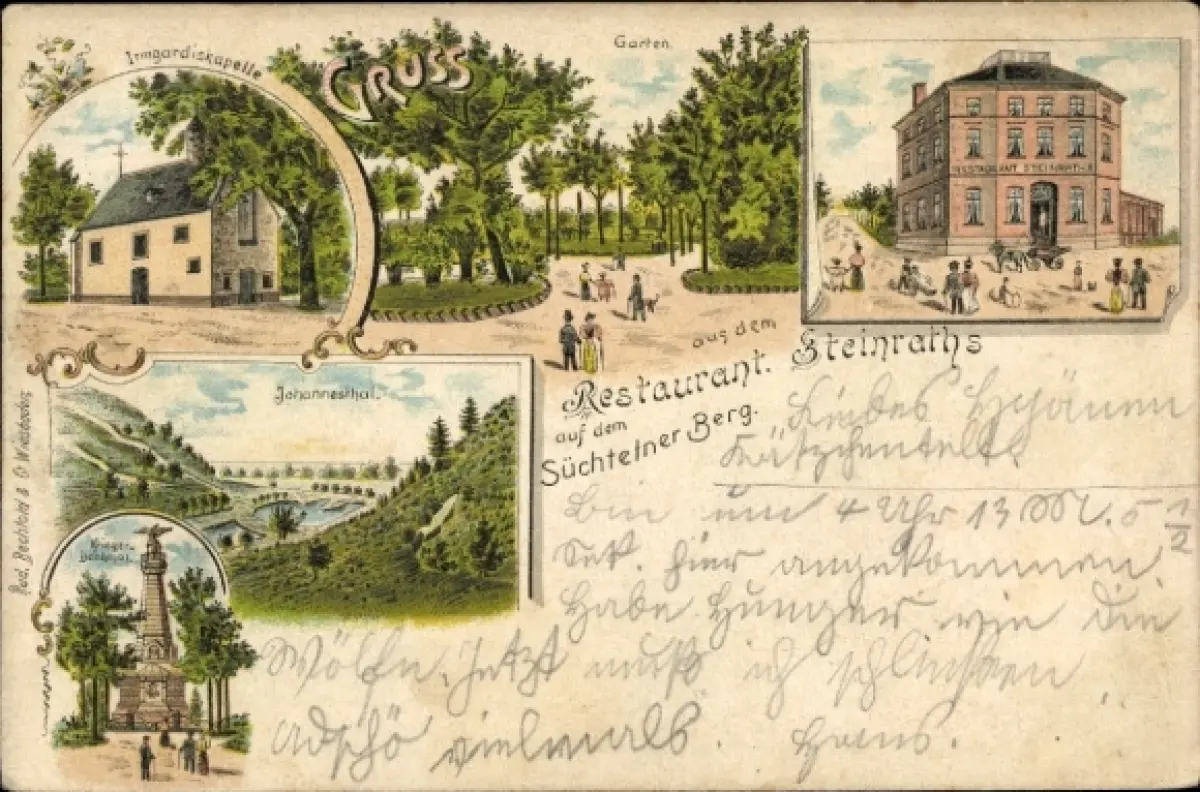 Irmgardiskapelle
GRUSS
Garten.
RESTAURANT STEINRATHS
aus dem
Restaurant. Steinraths
auf dem
Süchtelner Berg.
Johannesthal.
Krieger-
Denkmal.
Rud. Bechtold & Co Wiesbaden
Liebes Schönen
Kätzchen
Bin um 4 Uhr 13 M. 5 1/2
Sek. hier angekommen.
Habe Hunger wie die
Wölfe. Jetzt muß ich schließen
adschö vielmals. Hans.